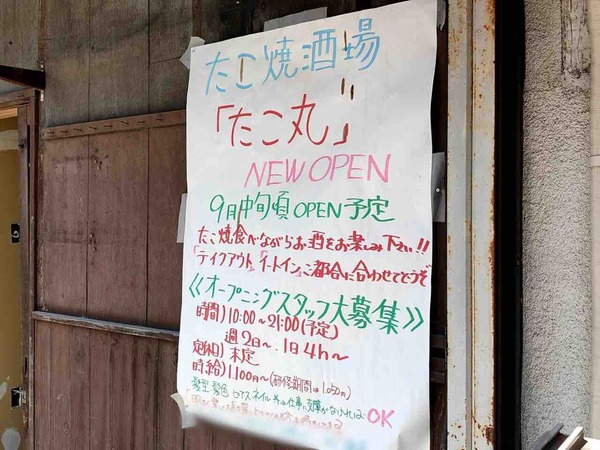 たこ焼酒場
「たこ丸」
NEW OPEN
9月中旬頃 OPEN予定
たこ焼食べながらお酒をお楽しみ下さい!!
「テイクアウト」「イートイン」ご都合に合わせてどうぞ
《オープニングスタッフ大募集》
時間)10:00〜21:00(予定)
週2日〜.1日4h〜
定休日)未定
時給)1,100円〜(研修期間は1,050円)
髪型 髪色 ピアス ネイル 等は仕事に支障がなければOK